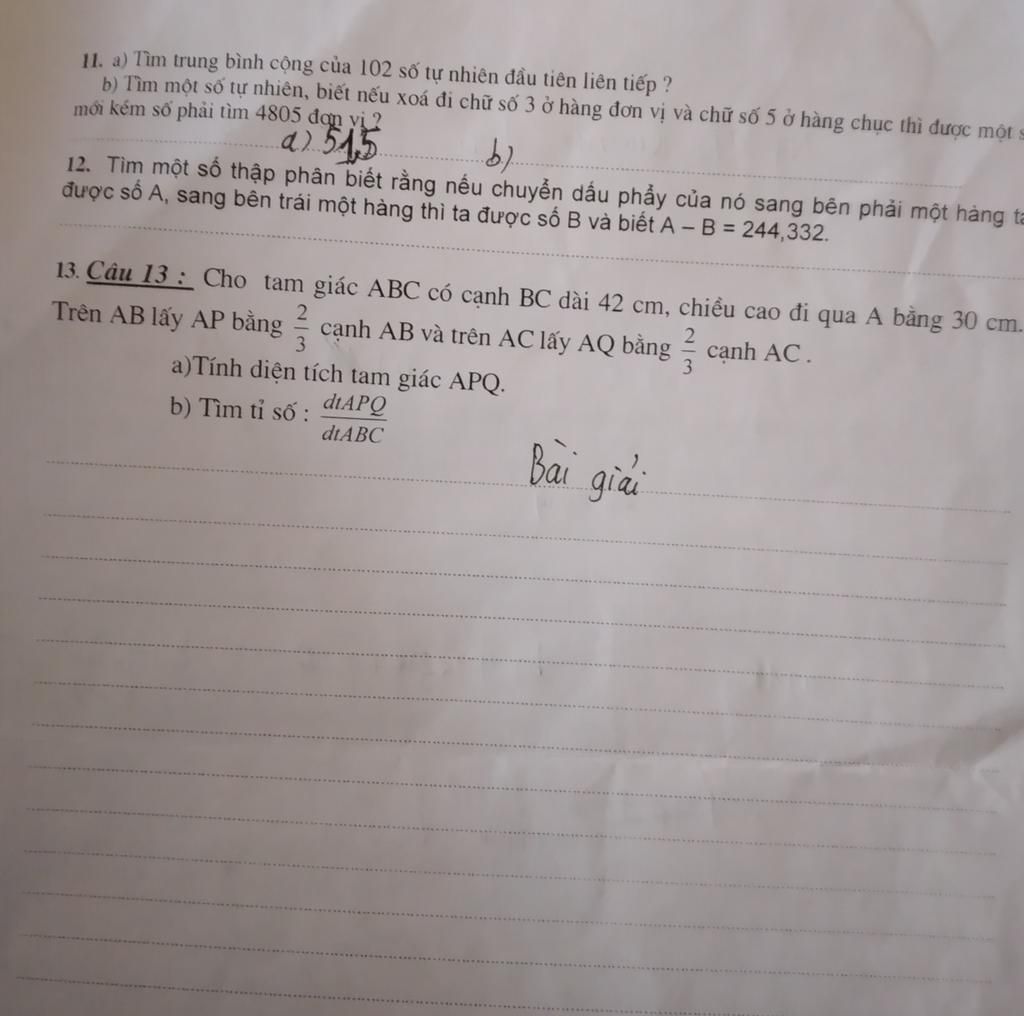 11. a) Tìm trung bình cộng của 102 số tự nhiên đầu tiên liên tiếp ?
b) Tìm một số tự nhiên, biết nếu xoá đi chữ số 3 ở hàng đơn vị và chữ số 5 ở hàng chục thì được một
mới kém số phải tìm 4805 đơn vị ?
a) 51,5 b)
12. Tìm một số thập phân biết rằng nếu chuyển dấu phẩy của nó sang bên phải một hàng
được số A, sang bên trái một hàng thì ta được số B và biết A – B = 244,332.
13. Câu 13 : Cho tam giác ABC có cạnh BC dài 42 cm, chiều cao đi qua A bằng 30 cm.
Trên AB lấy AP bằng 2/3 cạnh AB và trên AC lấy AQ bằng 2/3 cạnh AC .
a)Tính diện tích tam giác APQ.
b) Tìm tỉ số : dtAPQ/dtABC
Bài giải